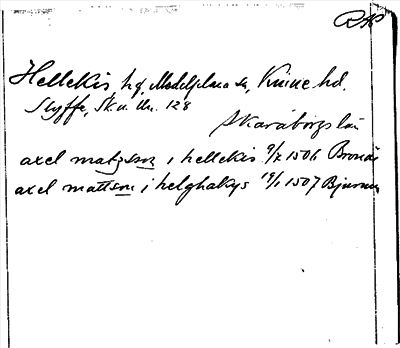 RAP
Hellekis, hg, Medelplana sn, Kinne hd.
Styffe, Sk. u. Un. 128
Skaraborgs län
axel matzson i hellekis 9/7 1506 Bronäs
axel mattson i helghakys 19/1 1507 Bjurum